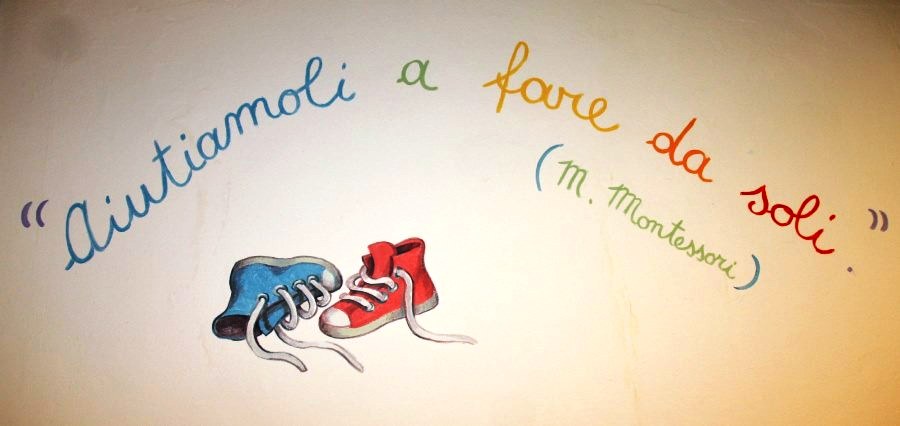 “Aiutiamoli a fare da soli.”
(M. Montessori)